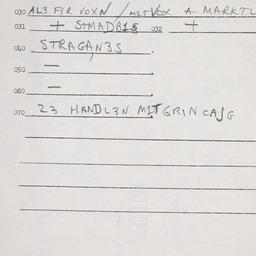 030 AL3 FIR VOXN / MITVOX A MARKTL
031 + STMADB1S 032 +
040 STRAGAN3S
050 —
060 —
070 23 HANDL3N MIT GRIN CAJG